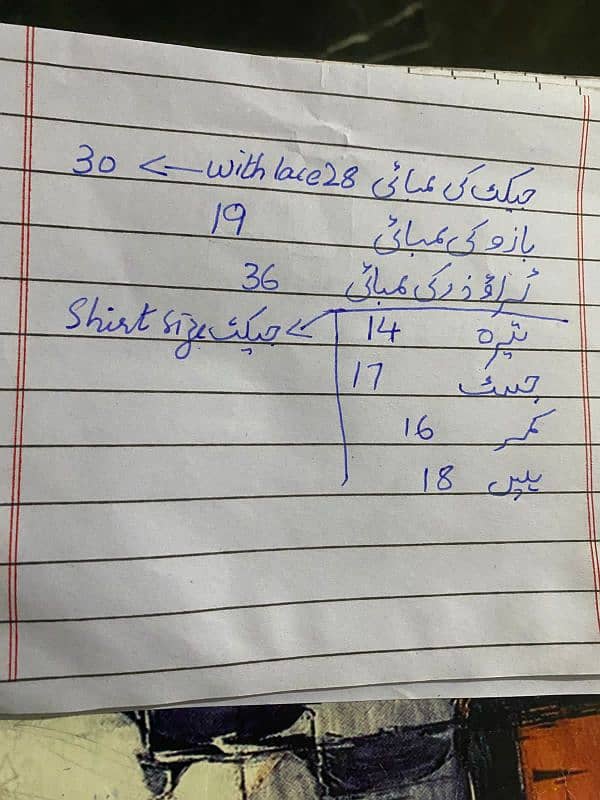 جیکٹ کی لمبائی 28 with lace <— 30
بازو کی لمبائی 19
ٹراؤذر کی لمبائی 36
تیرہ 14 <— جیکٹ Shirt size
چسٹ 17
کمر 16
ہپس 18